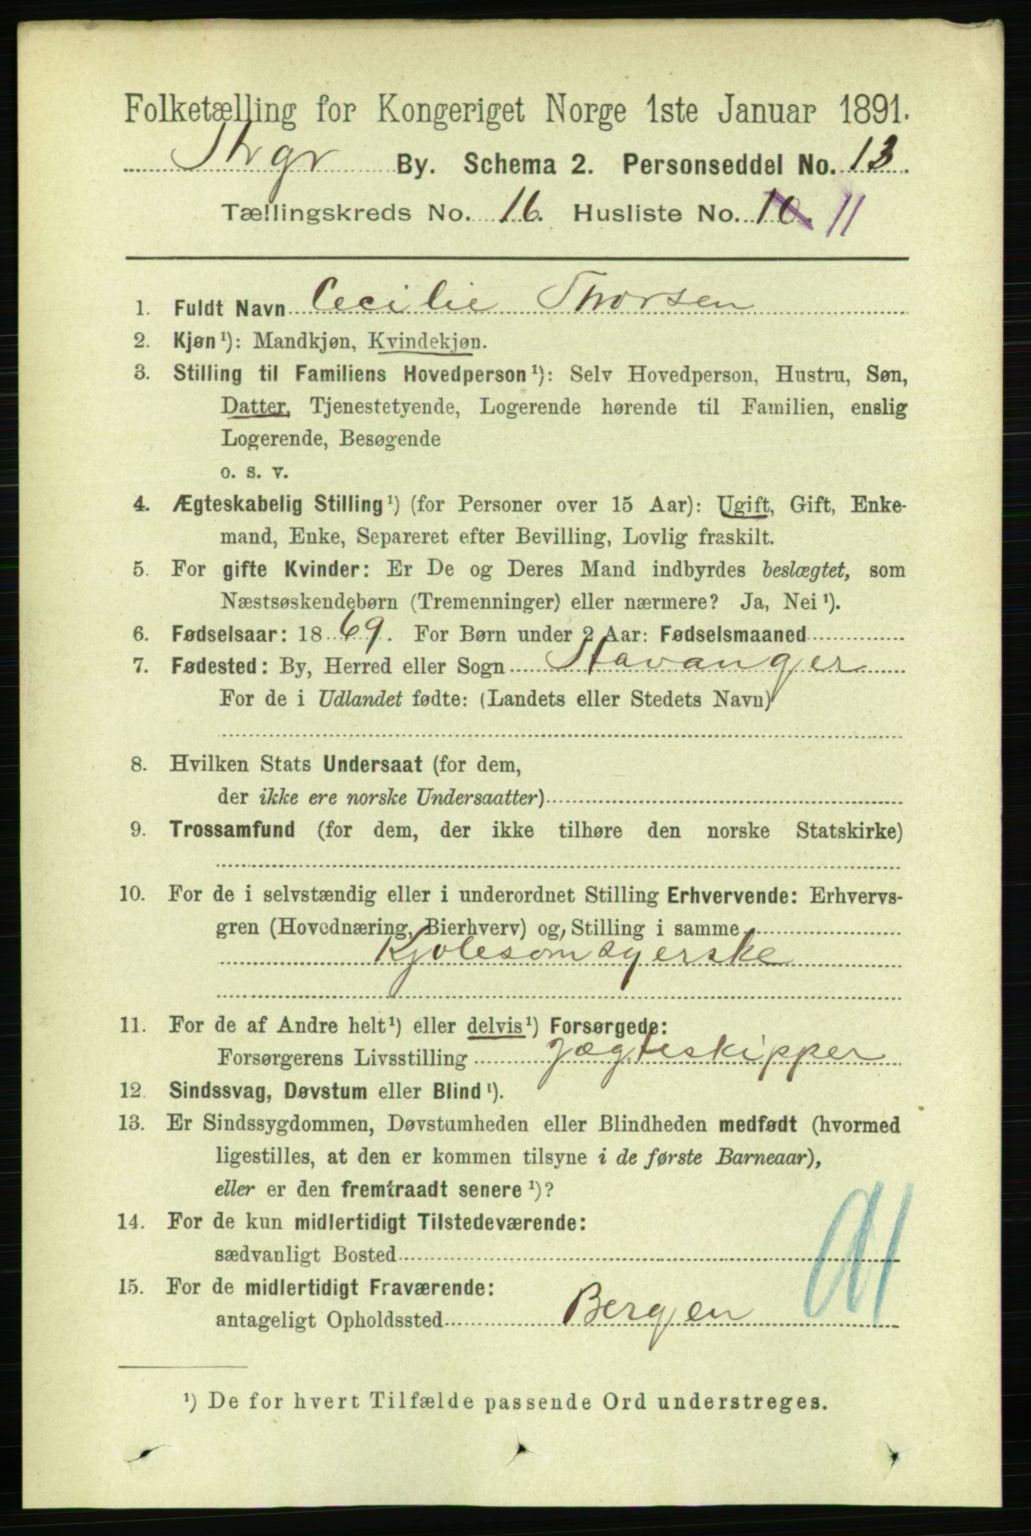 Folketælling for Kongeriget Norge 1ste Januar 1891.
By. Schema 2. Personseddel No. 13.
Tællingskreds No. 16. Husliste No. 10. 11
1. Fuldt Navn Cecilie Thorsen
2. Kjøn¹): Mandkjøn, Kvindekjøn.
3. Stilling til Familiens Hovedperson¹): Selv Hovedperson, Hustru, Søn,
Datter, Tjenestetyende, Logerende hørende til Familien, enslig
Logerende, Besøgende
o. s. v.
4. Ægteskabelig Stilling¹) (for Personer over 15 Aar): Ugift, Gift, Enke-
mand, Enke, Separeret efter Bevilling, Lovlig fraskilt.
5. For gifte Kvinder: Er De og Deres Mand indbyrdes beslægtet, som
Næstsøskendebørn (Tremenninger) eller nærmere? Ja, Nei¹).
6. Fødselsaar: 1869. For Børn under 2 Aar: Fødselsmaaned
7. Fødested: By, Herred eller Sogn Stavanger
For de i Udlandet fødte: (Landets eller Stedets Navn)
8. Hvilken Stats Undersaat (for dem,
der ikke ere norske Undersaatter)
9. Trossamfund (for dem, der ikke tilhøre den norske Statskirke)
10. For de i selvstændig eller i underordnet Stilling Erhvervende: Erhvervs-
gren (Hovednæring, Bierhverv) og Stilling i samme
Kjolesomsyerske
11. For de af Andre helt¹) eller delvis¹) Forsørgede:
Forsørgerens Livsstilling Jægteskipper
12. Sindssvag, Døvstum eller Blind¹).
13. Er Sindssygdommen, Døvstumheden eller Blindheden medfødt (hvormed
ligestilles, at den er kommen tilsyne i de første Barneaar),
eller er den fremtraadt senere¹)?
14. For de kun midlertidigt Tilstedeværende:
sædvanligt Bosted
15. For de midlertidigt Fraværende:
antageligt Opholdssted Bergen
¹) De for hvert Tilfælde passende Ord understreges.